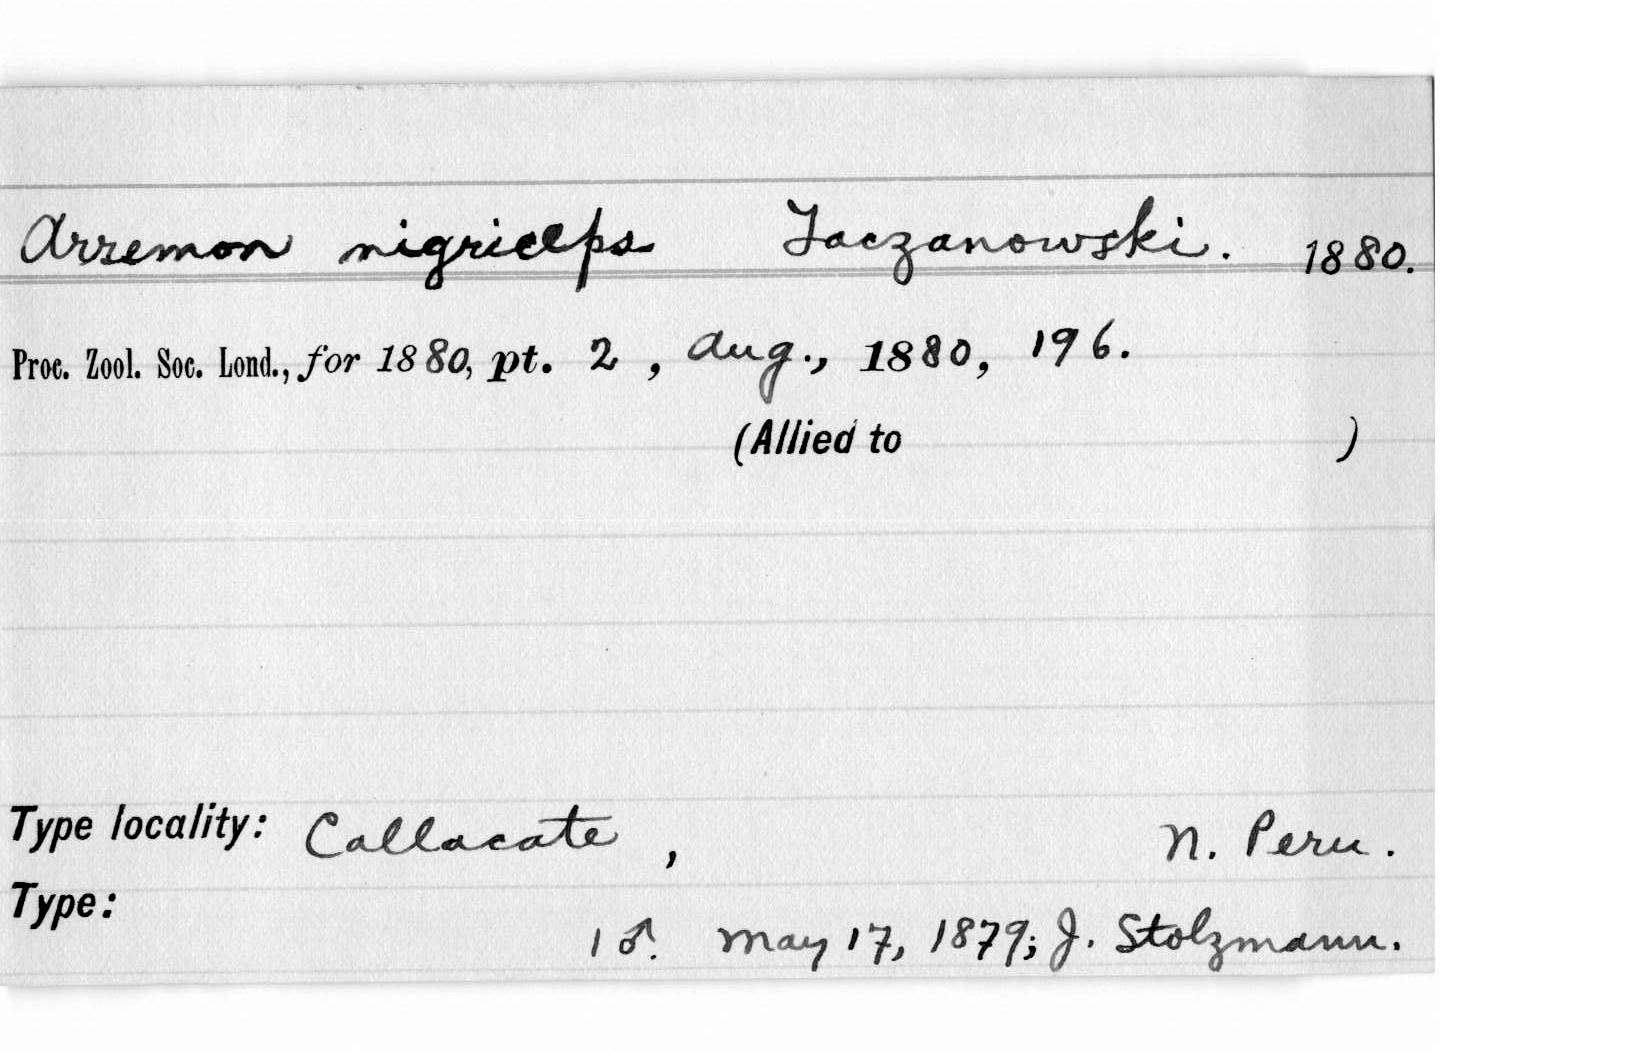 Arremon nigriceps Taczanowski. 1880.
Proc. Zool. Soc. Lond., for 1880, pt. 2, Aug., 1880, 196.
(Allied to )
Type locality: Callacate, N. Peru.
Type:
1 ♂. May 17, 1879; J. Stolzmann.